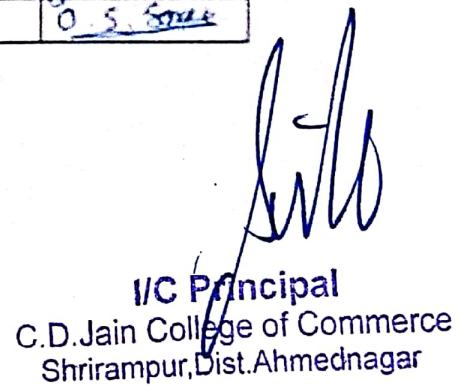 O. S.
I/C Principal
C.D.Jain College of Commerce
Shrirampur,Dist.Ahmednagar